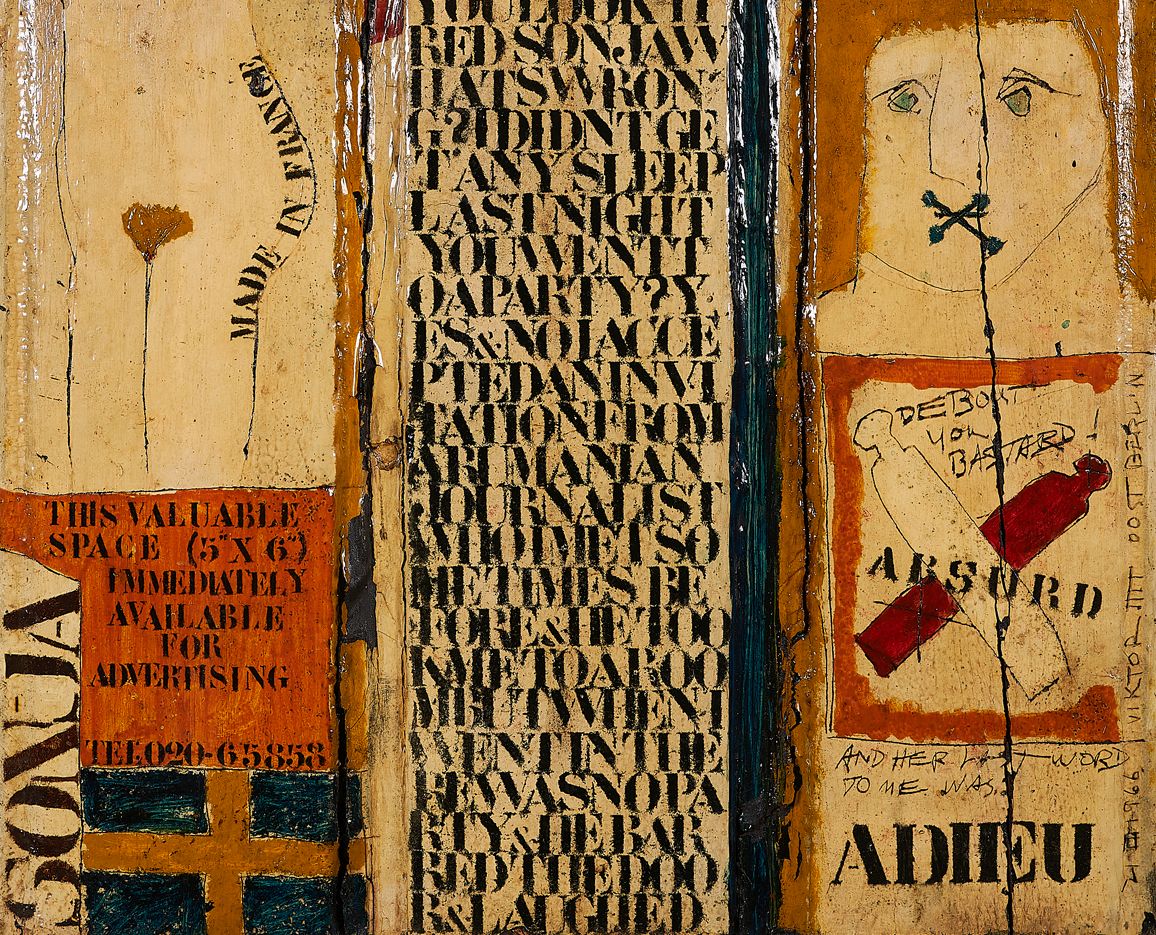 MADE IN FRANCE
THIS VALUABLE
SPACE (5"X 6")
IMMEDIATELY
AVAILABLE
FOR
ADVERTISING
TEL020-65858
SONJA
YOULOOKTI
REDSONJAW
HATSWRON
G?IDIDNTGE
TANYSLEEP
LASTNIGHT
YOUWENTT
OAPARTY?Y
ES&NOIACCE
PTEDANINVI
TATIONFROM
ARUMANIAN
JOURNALIST
WHOIMETSO
METIMESBE
FORE&HETOO
KMETOAROO
MBUTWHENI
WENTINTHE
REWASNOPA
RTY&HEBAR
REDTHEDOO
R&LAUGHED
DEBOUT
YOU
BASTARD!
ABSURD
AND HER LAST WORD
TO ME WAS.
ADIEU
1966 VIKTOR IIII OOST BERLIN